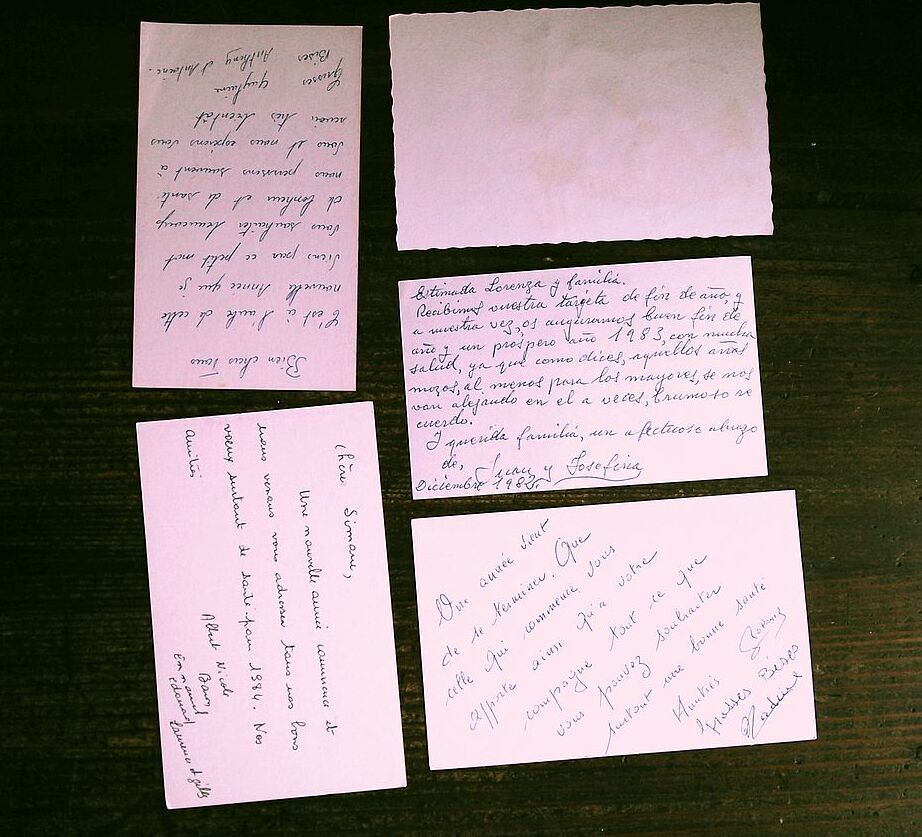 Bien chers Tous
C'est à l'aube de cette
nouvelle Année que je
viens par ce petit mot
vous souhaiter beaucoup
de bonheur et de santé.
nous pensons souvent à
vous et nous espérons vous
revoir très bientôt
Grosses Guylaine
Bises Anthony et Antoine.
Estimada Lorenza y familia.
Recibimos vuestra targeta de fin de año, y
a nuestra vez, os auguramos buen fin de
año y un prospero año 1983, con mucha
salud, ya que como dices, aquellos años
mozos, al menos para los mayores, se nos
van alejando en el a veces, brumoso re
cuerdo.
Y querida familia, un afectuoso abrazo
de, Juan y Josefina
Diciembre 1982.
Chère Simone,
Une nouvelle année commence et
nous venons vous adresser tous nos bons
voeux surtout de santé pour 1984. Nos
amitiés
Albert Nicole
Emmanuel
Edouard Laurence et gilles
Une année vient
de se terminer. Que
celle qui commence, vous
apporte ainsi qu'à votre
compagne tout ce que
vous pouvez souhaiter
surtout une bonne santé
Amitiés
Grosses Bises
Nadine